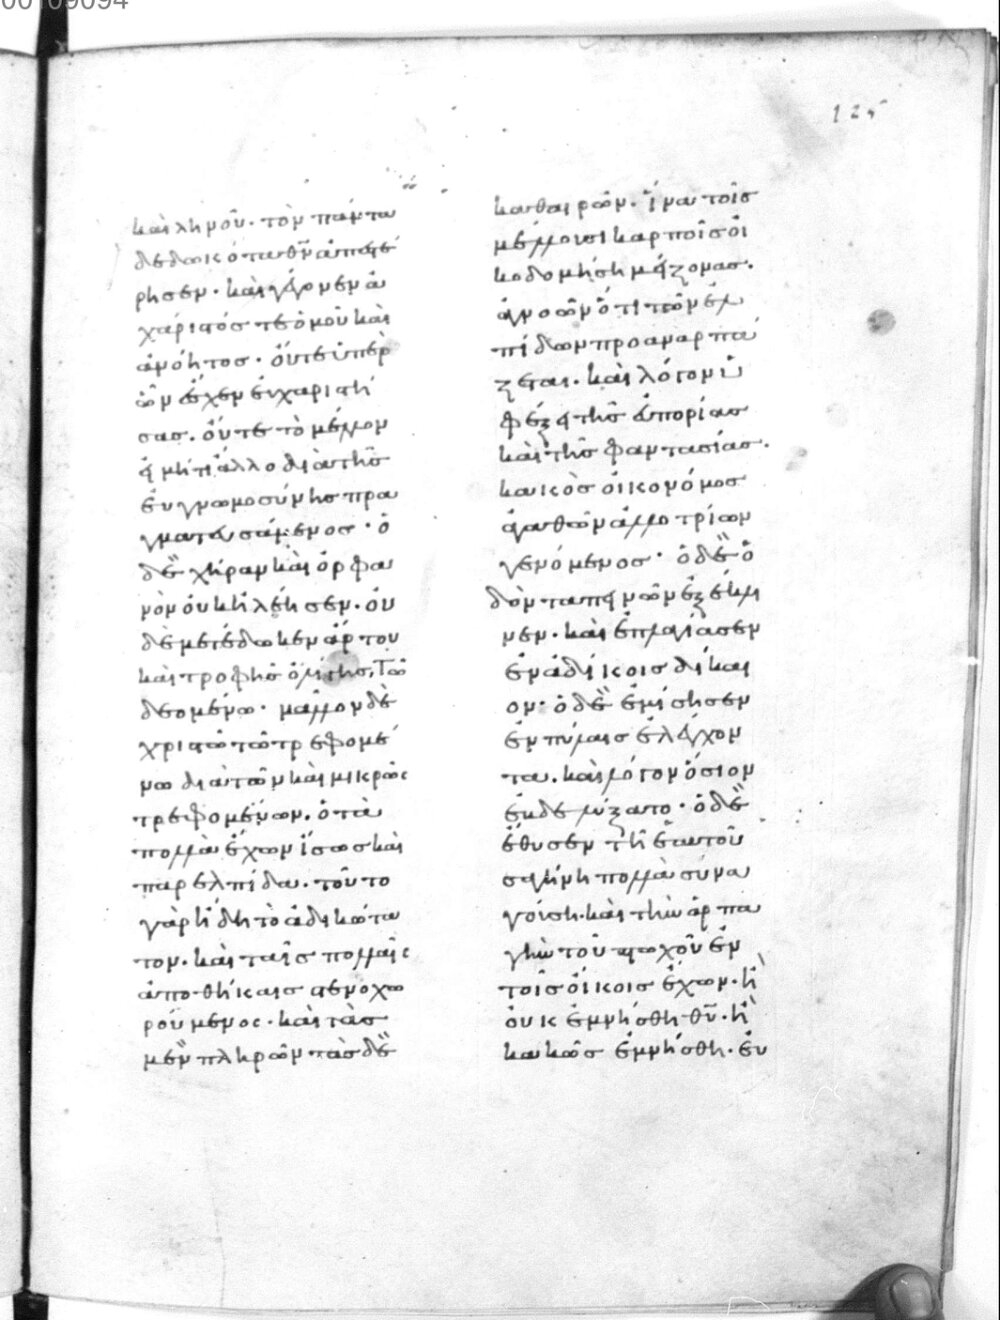 00109094
125
καὶ λιμοῦ· τὸν πάντα
δεδωκότα θ̅ν̅ ἀπεστέ
ρησεν· καὶ γέγονεν ἀ
χάριστός τε ὁμοῦ καὶ
ἀνόητος· οὔτε ὑπὲρ
ὧν ἔσχεν εὐχαριστή
σας. οὔτε τὸ μέλλον
εἰ μή τι ἄλλο διὰ τῆς
εὐγνωμοσύνης πρα
γματευσάμενος· ὁ
δὲ χήραν καὶ ὀρφα
νὸν οὐκ ἠλέησεν· οὐ
δὲ μετέδωκεν ἄρτου
καὶ τροφῆς ὀλίγης, τῶ
δεομένω· μᾶλλον δὲ
χριστῶ τῶ τρεφομέ
νω διὰ τῶν καὶ μικρῶς
τρεφομένων. ὁ τὰ
πολλὰ ἔχων ἴσως καὶ
παρ ἐλπίδα. τοῦτο
γὰρ ἤδη τὸ ἀδικώτα
τον. καὶ ταῖς πολλαῖς
ἀποθήκαις στενοχω
ρούμενος· καὶ τὰς
μὲν πληρῶν τὰς δὲ
καθαιρῶν. ἵνα τοῖς
μέλλουσι καρποῖς οἰ
κοδομήση μείζονας.
ἀγνοῶν ὅτι τῶν ἐλ
πίδων προαναρπά
ζεται. καὶ λόγον ὑ
φέξει τῆς ἀπορίας
καὶ τῆς φαντασίας.
κακὸς οἰκονόμος
ἀγαθῶν ἀλλοτρίων
γενόμενος· ὁ δὲ ὁ
δὸν ταπεινῶν ἐξέκλι
νεν. καὶ ἐπλαγίασεν
ἐν ἀδίκοις δίκαι
ον· ὁ δὲ ἐμίσησεν
ἐν πύλαις ἐλέγχον
τα. καὶ λόγον ὅσιον
ἐβδελύξατο· ὁ δὲ
ἔθυσεν τῆ ἑαυτοῦ
σαγήνη πολλὰ συνα
γούση. καὶ τὴν ἁρπα
γὴν τοῦ πτωχοῦ ἐν
τοῖς οἴκοις ἔχων. ἢ
οὐκ ἐμνήσθη θ̅υ̅. ἢ
κακῶς ἐμνήσθη. εὐ